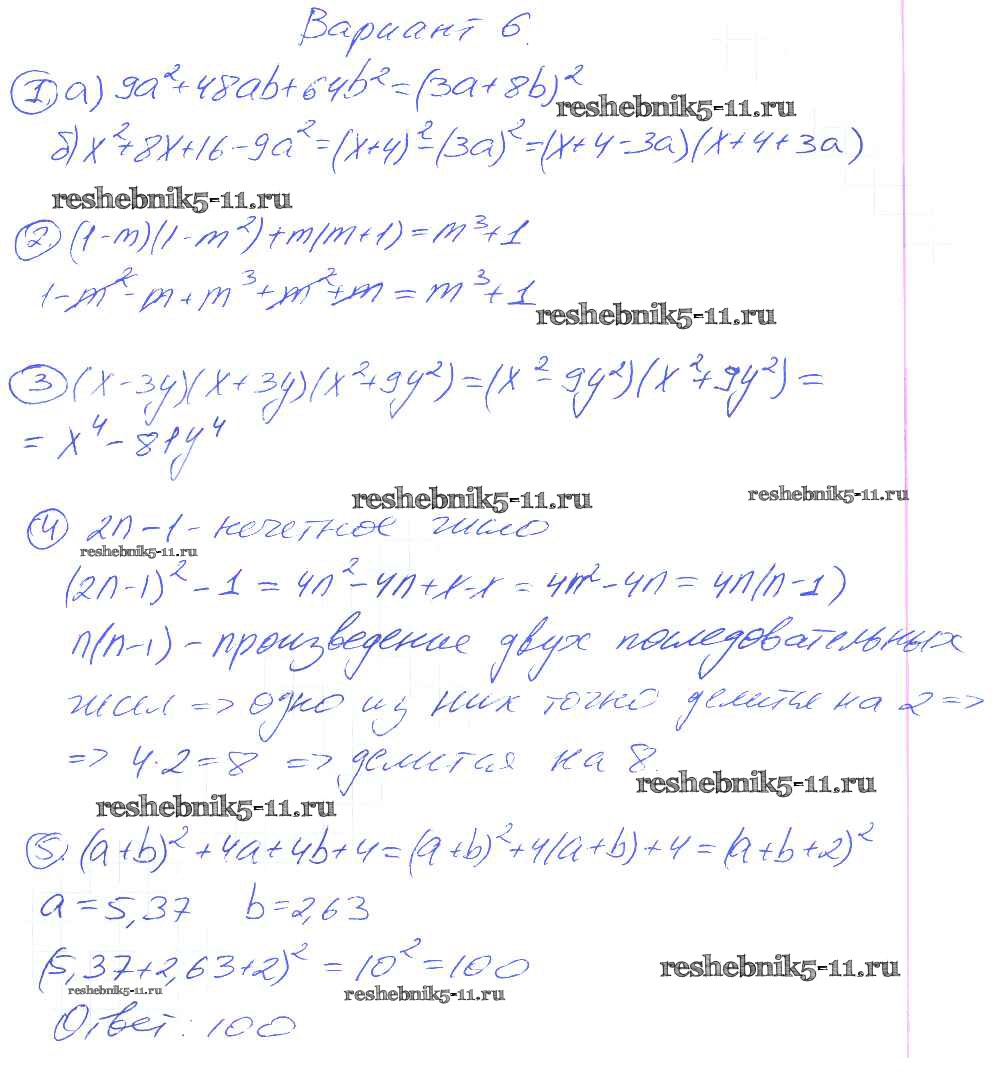 Вариант 6.
1. а) 9a²+48ab+64b²=(3a+8b)²
reshebnik5-11.ru
б) x²+8x+16-9a²=(x+4)²-(3a)²=(x+4-3a)(x+4+3a)
reshebnik5-11.ru
2. (1-m)(1-m²)+m(m+1)=m³+1
1-m²-m+m³+m²+m=m³+1
reshebnik5-11.ru
3 (x-3y)(x+3y)(x²+9y²)=(x²-9y²)(x²+9y²)=
=x⁴-81y⁴
reshebnik5-11.ru reshebnik5-11.ru
4 2n-1-нечетное число
reshebnik5-11.ru
(2n-1)²-1=4n²-4n+1-1=4n²-4n=4n(n-1)
n(n-1)-произведение двух последовательных
чисел => одно из них точно делится на 2 =>
=> 4·2=8 => делится на 8.
reshebnik5-11.ru
reshebnik5-11.ru
5. (a+b)²+4a+4b+4=(a+b)²+4(a+b)+4=(a+b+2)²
a=5,37 b=2,63
(5,37+2,63+2)²=10²=100
reshebnik5-11.ru
reshebnik5-11.ru reshebnik5-11.ru
Ответ: 100